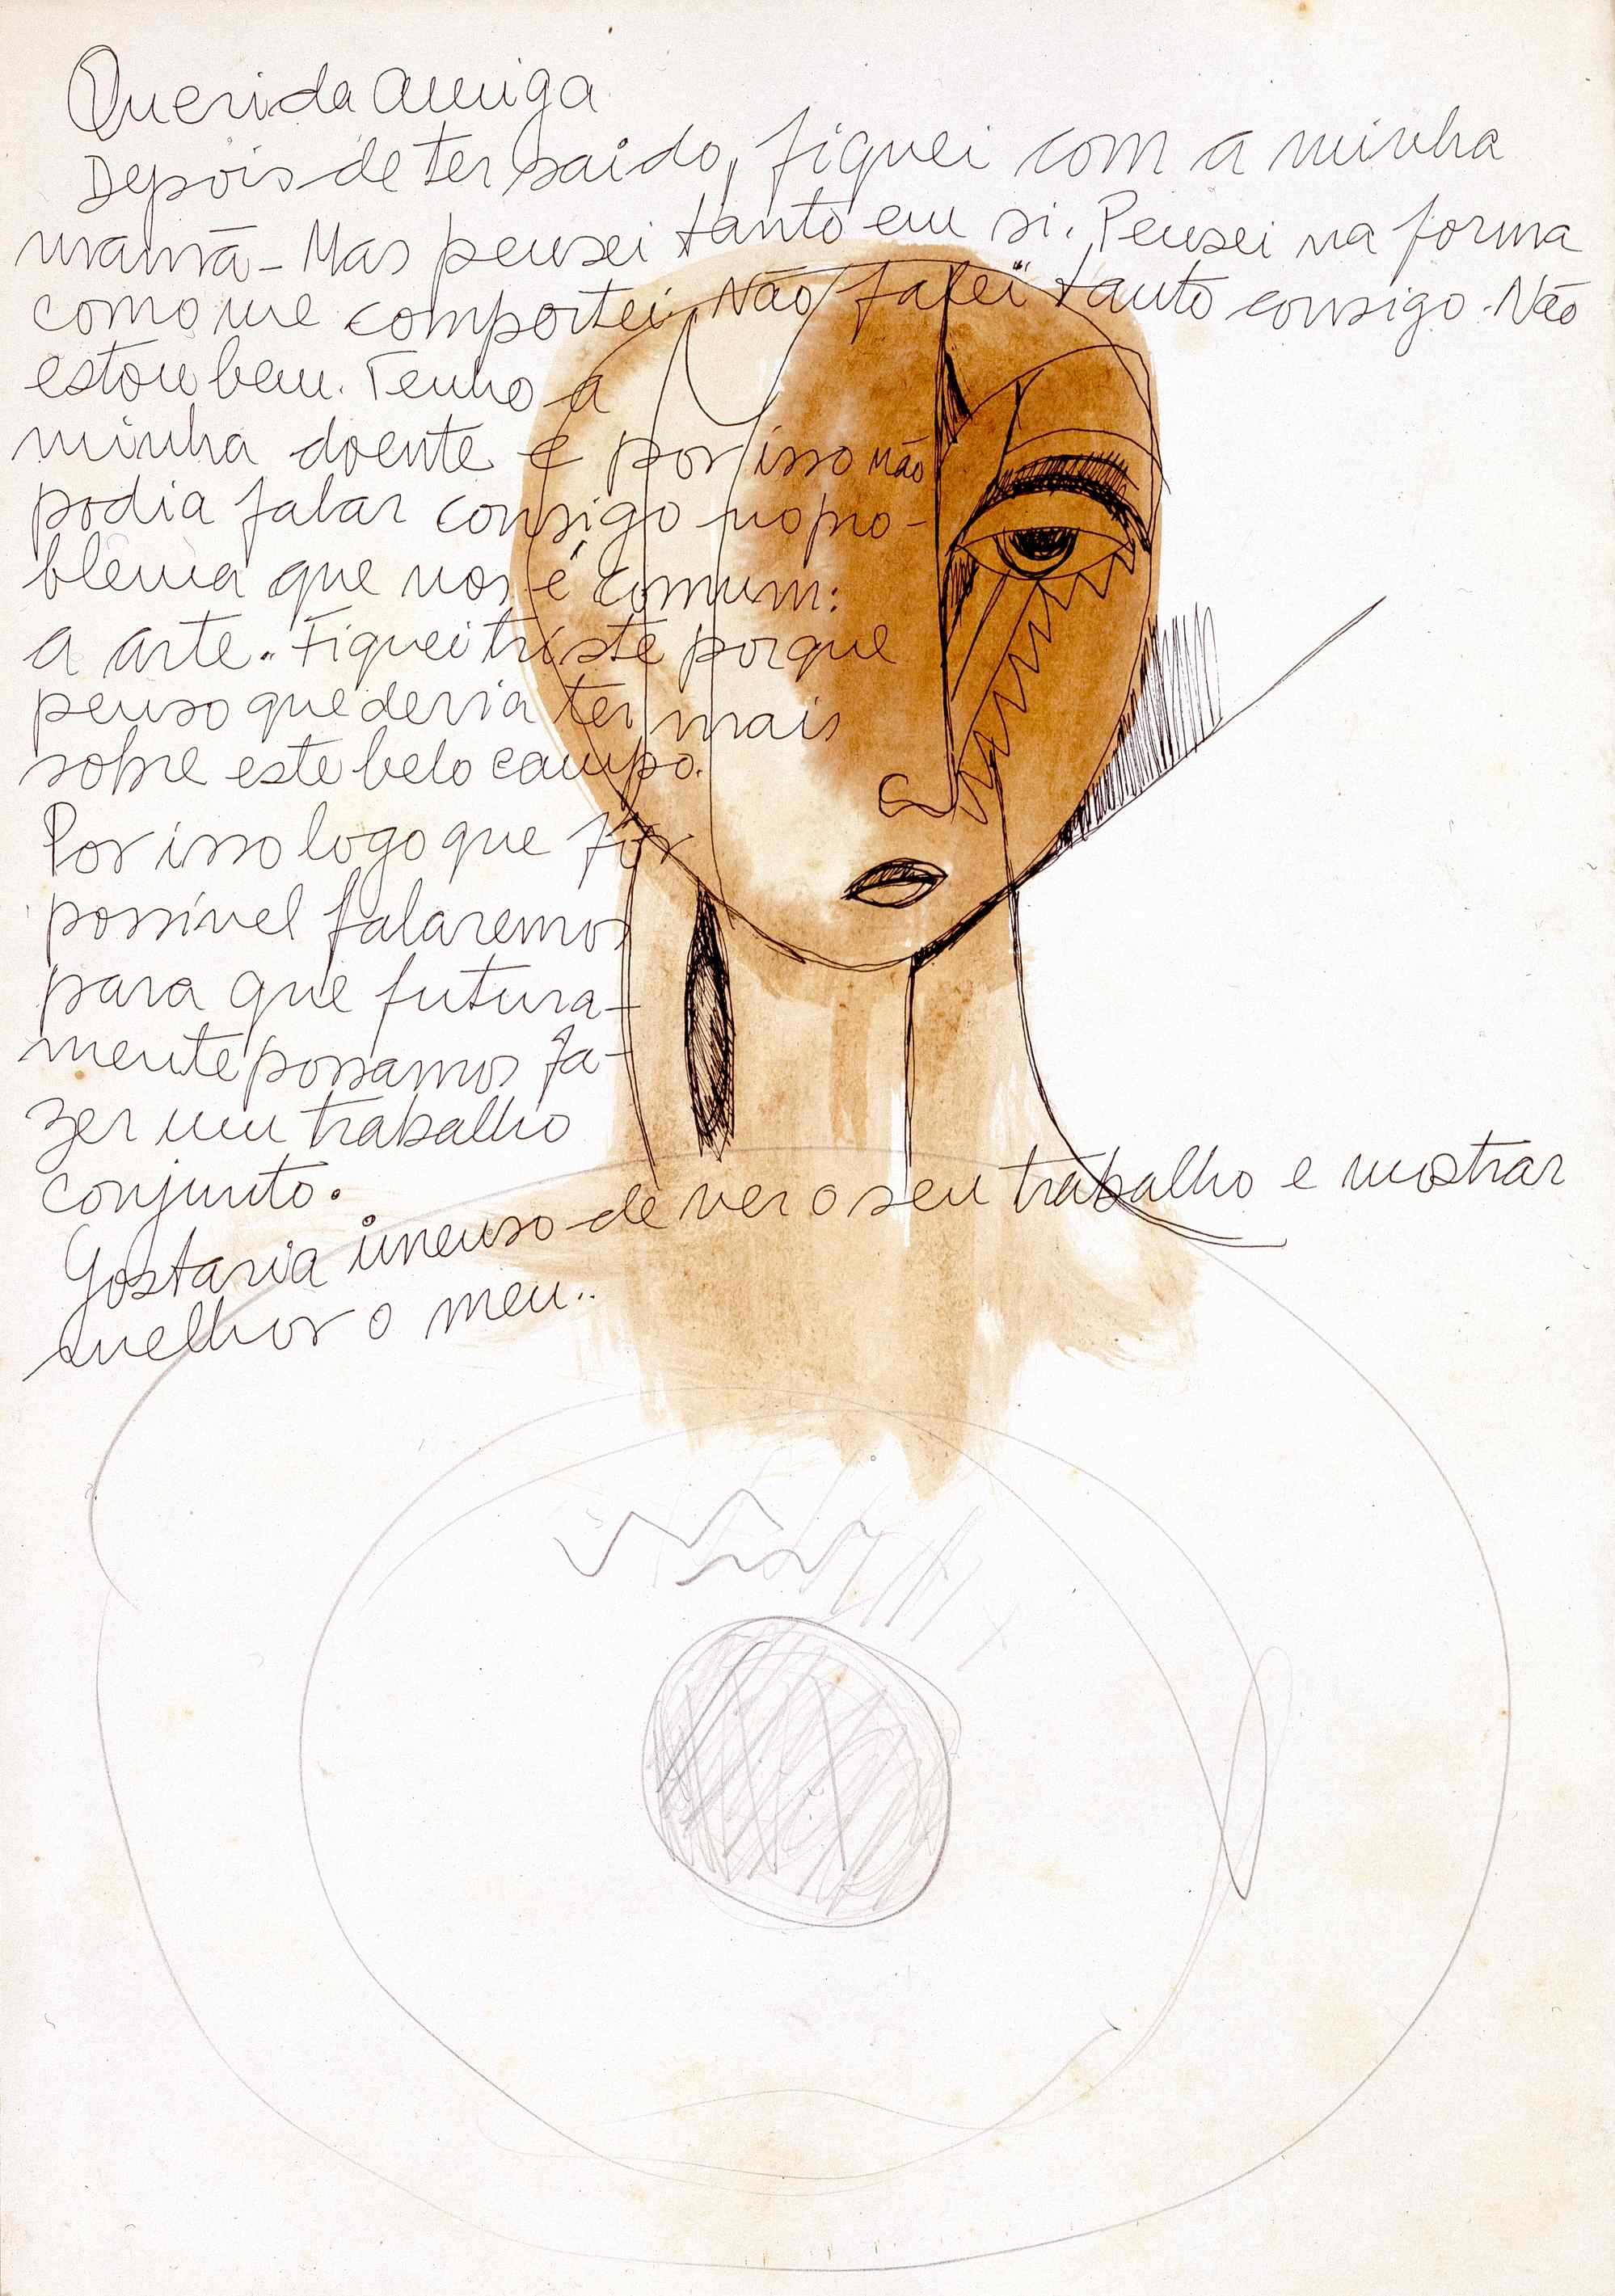 Querida amiga
Depois de ter saido, fiquei com a minha
mamã - Mas pensei tanto em si. Pensei na forma
como me comportei. Não "falei" tanto consigo. Não
estou bem. Tenho a
minha doente e por isso não
podia falar consigo no pro-
blema que nos é comum:
a arte. Fiquei triste porque
penso que devia ter mais
sobre este belo campo.
Por isso logo que for
possível falaremos
para que futura-
mente possamos fa-
zer um trabalho
conjunto.
Gostaria imenso de ver o seu trabalho e mostrar
melhor o meu..